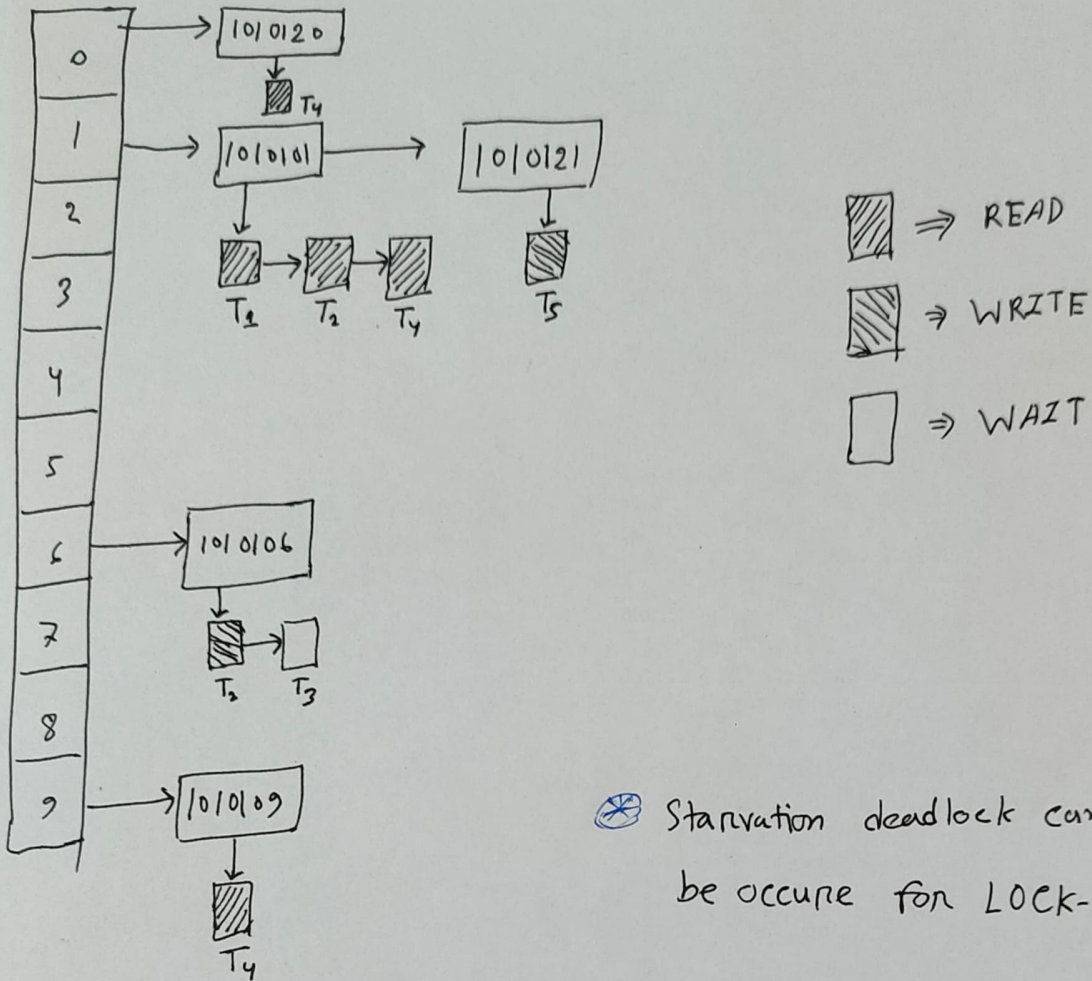 0
1010120
T4
1
1010101
1010121
2
3
T1 T2 T4
T5
4
5
6
1010106
7
T2 T3
8
9
1010109
T4
⇒ READ
⇒ WRITE
⇒ WAIT
Starvation deadlock can
be occure for LOCK-